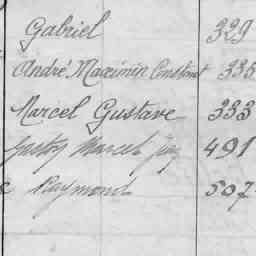 Gabriel 329
André Maximin Constant 335
Marcel Gustave 333
Gaston Marcel 491
Raymond 507